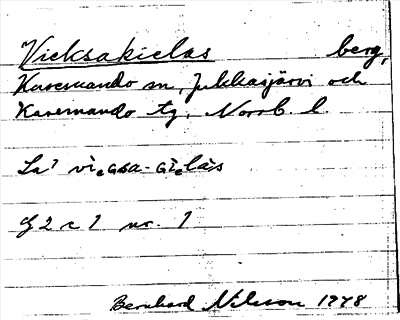 Vieksakielas berg,
Karesuando sn, Jukkasjärvi och
Karesuando tg. Norrb l.
La?
G 2 c 1 nr. 1
Bernhard Nilsson 1978